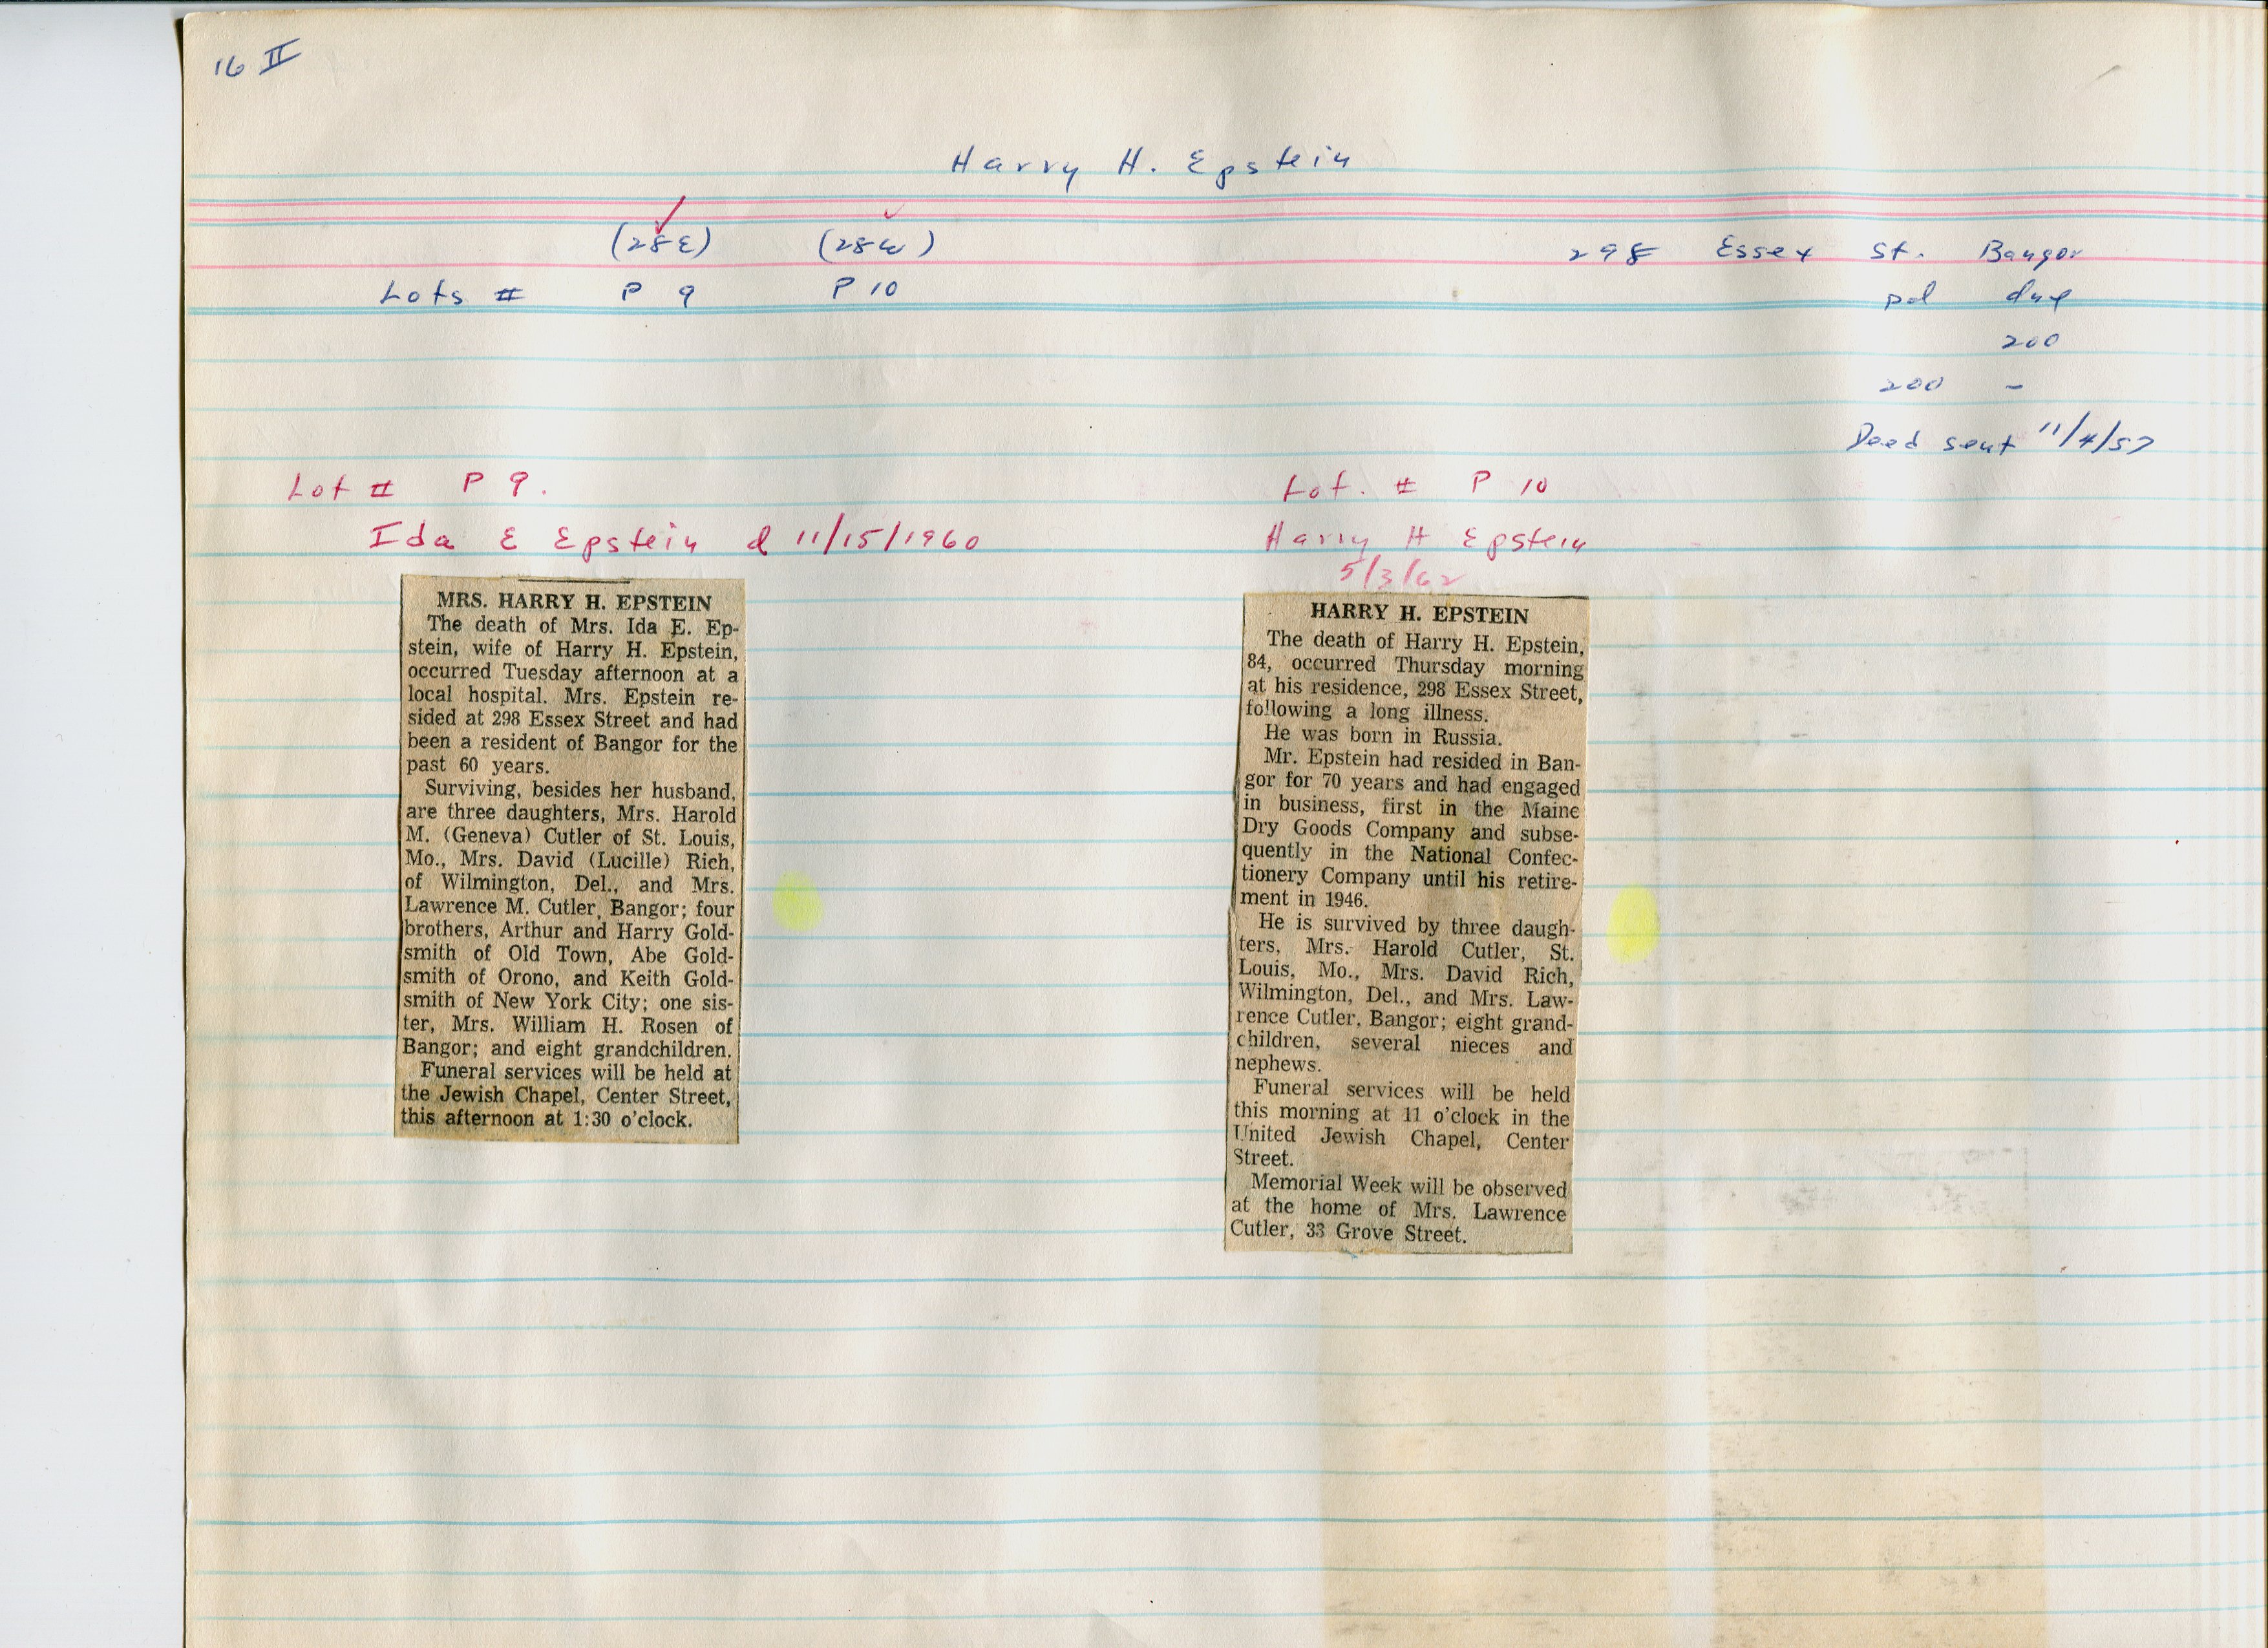 16 II
Harry H. Epstein
(28E) (28W) 298 Essex St. Bangor
Lots # P 9 P 10 pd due
200
200 -
Deed sent 11/4/57
Lot # P 9.
Ida E Epstein d 11/15/1960
MRS. HARRY H. EPSTEIN
The death of Mrs. Ida E. Ep-
stein, wife of Harry H. Epstein,
occurred Tuesday afternoon at a
local hospital. Mrs. Epstein re-
sided at 298 Essex Street and had
been a resident of Bangor for the
past 60 years.
Surviving, besides her husband,
are three daughters, Mrs. Harold
M. (Geneva) Cutler of St. Louis,
Mo., Mrs. David (Lucille) Rich,
of Wilmington, Del., and Mrs.
Lawrence M. Cutler, Bangor; four
brothers, Arthur and Harry Gold-
smith of Old Town, Abe Gold-
smith of Orono, and Keith Gold-
smith of New York City; one sis-
ter, Mrs. William H. Rosen of
Bangor; and eight grandchildren.
Funeral services will be held at
the Jewish Chapel, Center Street,
this afternoon at 1:30 o'clock.
Lot. # P 10
Harry H Epstein
5/3/62
HARRY H. EPSTEIN
The death of Harry H. Epstein,
84, occurred Thursday morning
at his residence, 298 Essex Street,
following a long illness.
He was born in Russia.
Mr. Epstein had resided in Ban-
gor for 70 years and had engaged
in business, first in the Maine
Dry Goods Company and subse-
quently in the National Confec-
tionery Company until his retire-
ment in 1946.
He is survived by three daugh-
ters, Mrs. Harold Cutler, St.
Louis, Mo., Mrs. David Rich,
Wilmington, Del., and Mrs. Law-
rence Cutler, Bangor; eight grand-
children, several nieces and
nephews.
Funeral services will be held
this morning at 11 o'clock in the
United Jewish Chapel, Center
Street.
Memorial Week will be observed
at the home of Mrs. Lawrence
Cutler, 33 Grove Street.